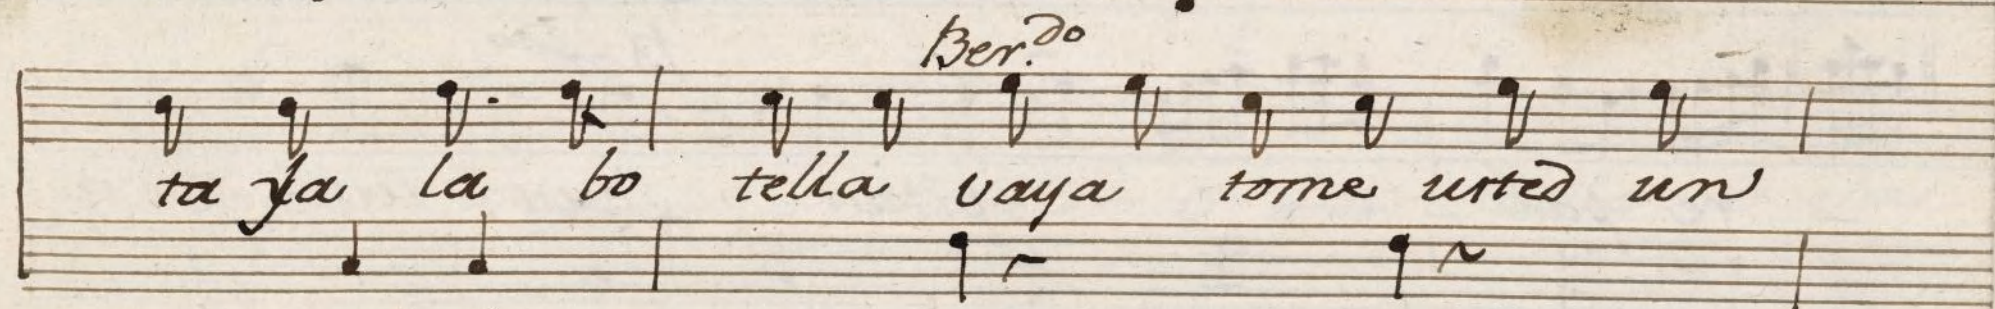 Ber.do
ta ya la bo tella vaya tome usted un